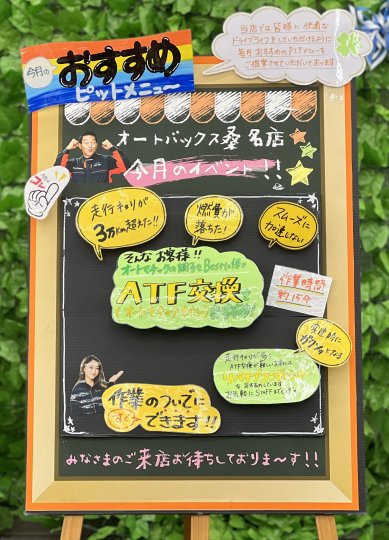 今月の
おすすめ
ピットメニュ～
当店では皆様に快適な
ドライブライフをしていただけるように
毎月おすすめのPITメニューを
ご提案させていただいております
オートバックス桑名店
今月のイベント!!
走行キョリが
3万km超えた!!
燃費が
落ちた!
スムーズに
加速しない
そんなお客様!!
ATF交換
作業時間
約15分
作業のついでに
できます!!
お気軽にSTAFFまで
みなさまのご来店お待ちしておりま～す!!